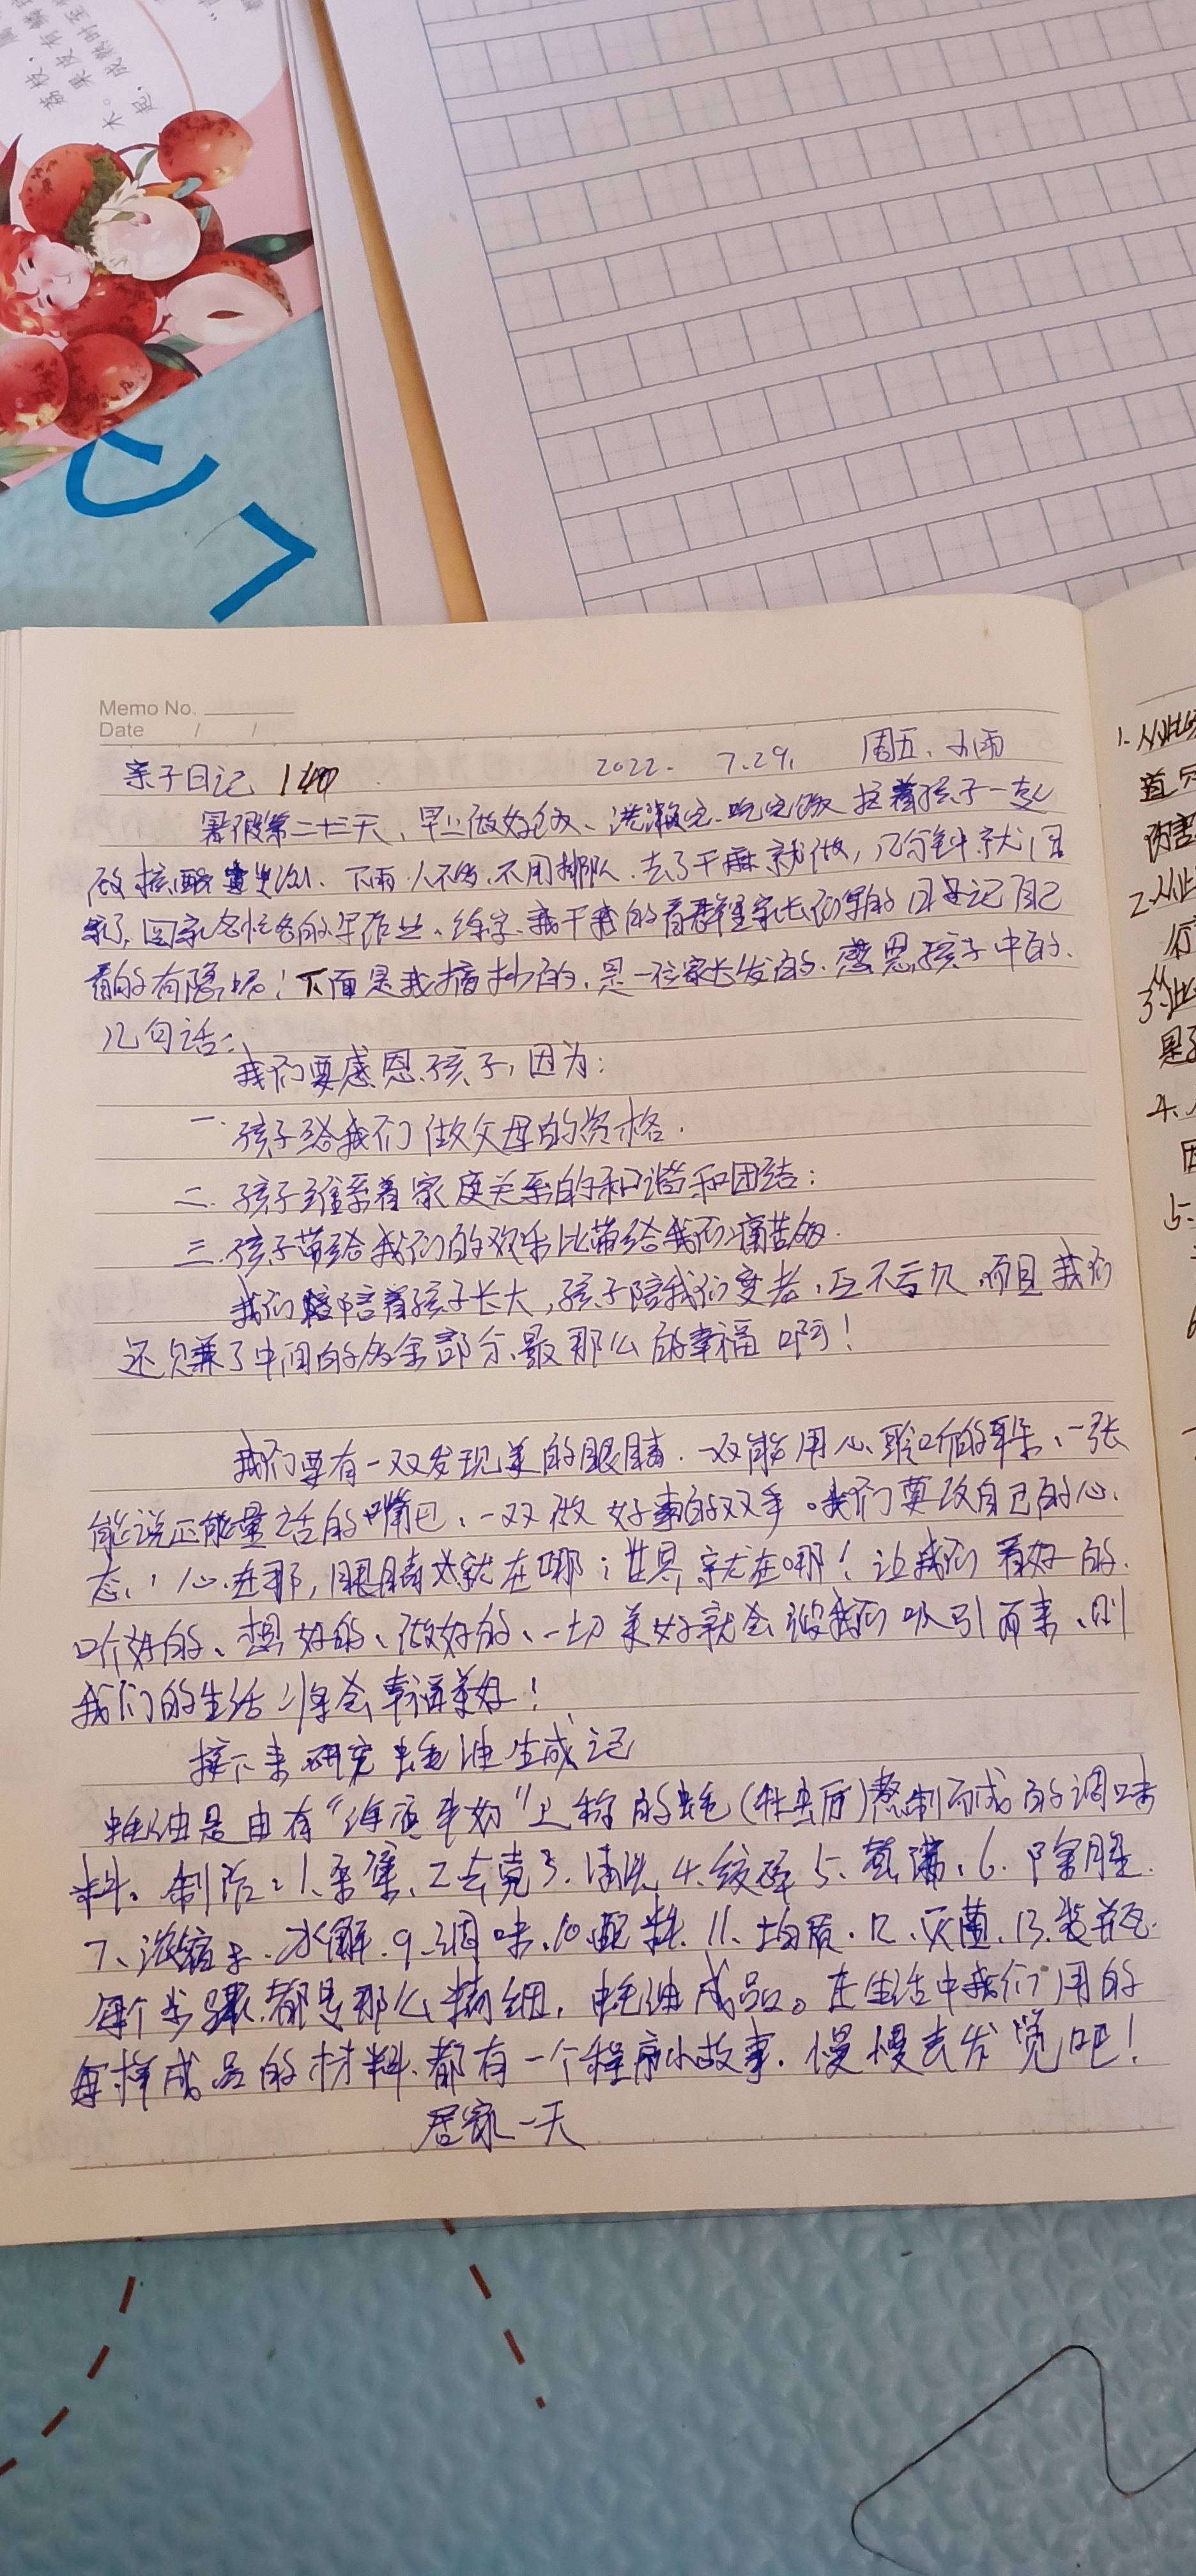 荔枝
果皮有鳞
成熟时至
Memo No.
Date / /
亲子日记 140 2022. 7.29. 周五、小雨
暑假第二十天、早上做好饭、洗漱完、吃完饭 拉着孩子一起
做核酸 下雨、人不多、不用排队、去了干麻就做，几分钟就回
来了，回家各忙各的写作业、练字、我干我的看群里家长们写的日记自己
看的有隐 ！下面是我摘抄的，是一位家长发的、感恩孩子中的、
几句话：
我们要感恩孩子，因为：
一. 孩子给我们做父母的资格.
二. 孩子维系着家庭关系的和谐和团结；
三. 孩子带给我们的欢乐比带给我们痛苦多.
我们陪着孩子长大，孩子陪我们变老，互不亏欠，而且我们
还赚了中间的多余部分、最那么的幸福啊！
我们要有一双发现美的眼睛. 一双能用心聆听的耳朵、一张
能说正能量话的嘴巴、一双做好事的双手。我们要改自己的心
态、！心在那，眼睛就在哪；世界就在哪！让我们看好的、
听好的、想好的、做好的、一切美好就会被我们吸引而来、则
我们的生活将会幸福美好！
接下来研究蚝油生成记
蚝油是由有“海底牛奶”之称的蚝（牡蛎）熬制而成的调味
料。制作：1、采集、2、去壳 3、清洗 4、绞碎 5、蒸沸、6、除腥
7、浓缩 8、水解、9、调味、10、配料、11、均质、12、灭菌、13、装瓶
每个步骤都是那么精细，蚝油成品。在生活中我们用的
每样成品的材料、都有一个程序小故事、慢慢去发觉吧！
居家一天
1.从此
道
伤害
2.从此
行
3.从此
是
4.
因
5.